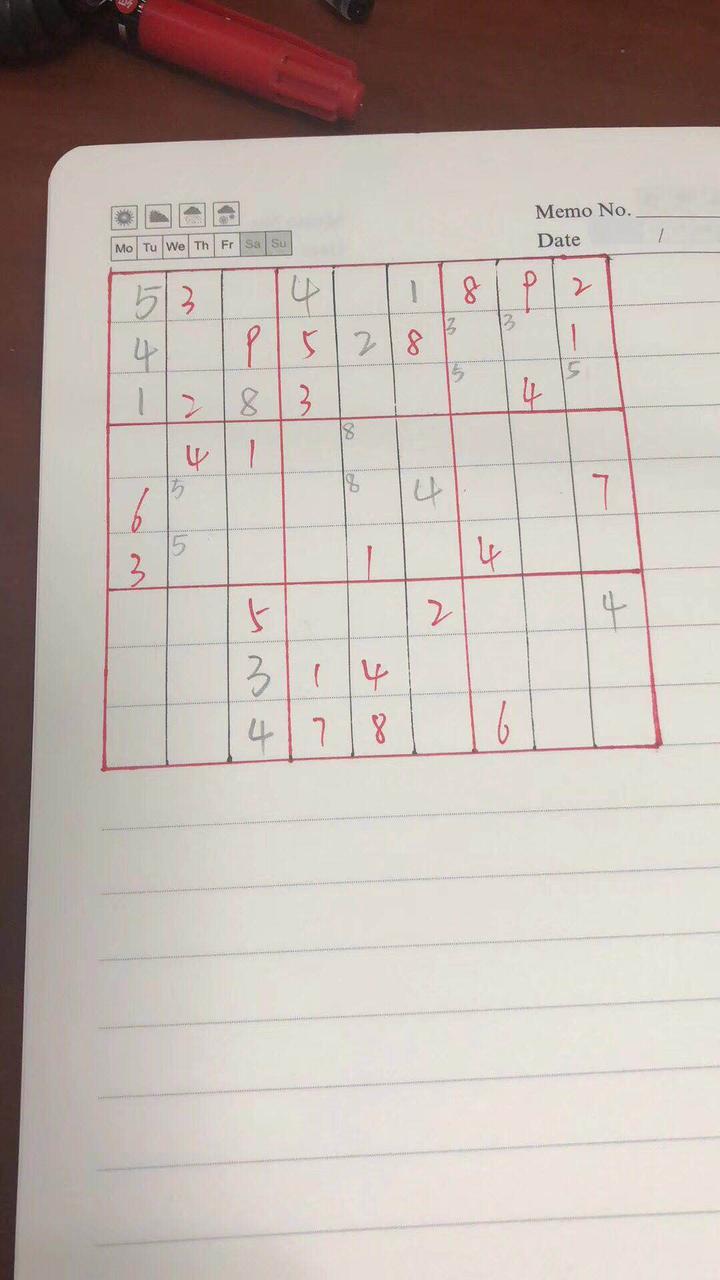 Mo Tu We Th Fr Sa Su
Memo No.
Date /
5 3 4 1 8 9 2
4 9 5 2 8 3 3 1
1 2 8 3 5 4 5
4 1 8
6 5 8 4 7
3 5 1 4
5 2 4
3 1 4
4 7 8 6